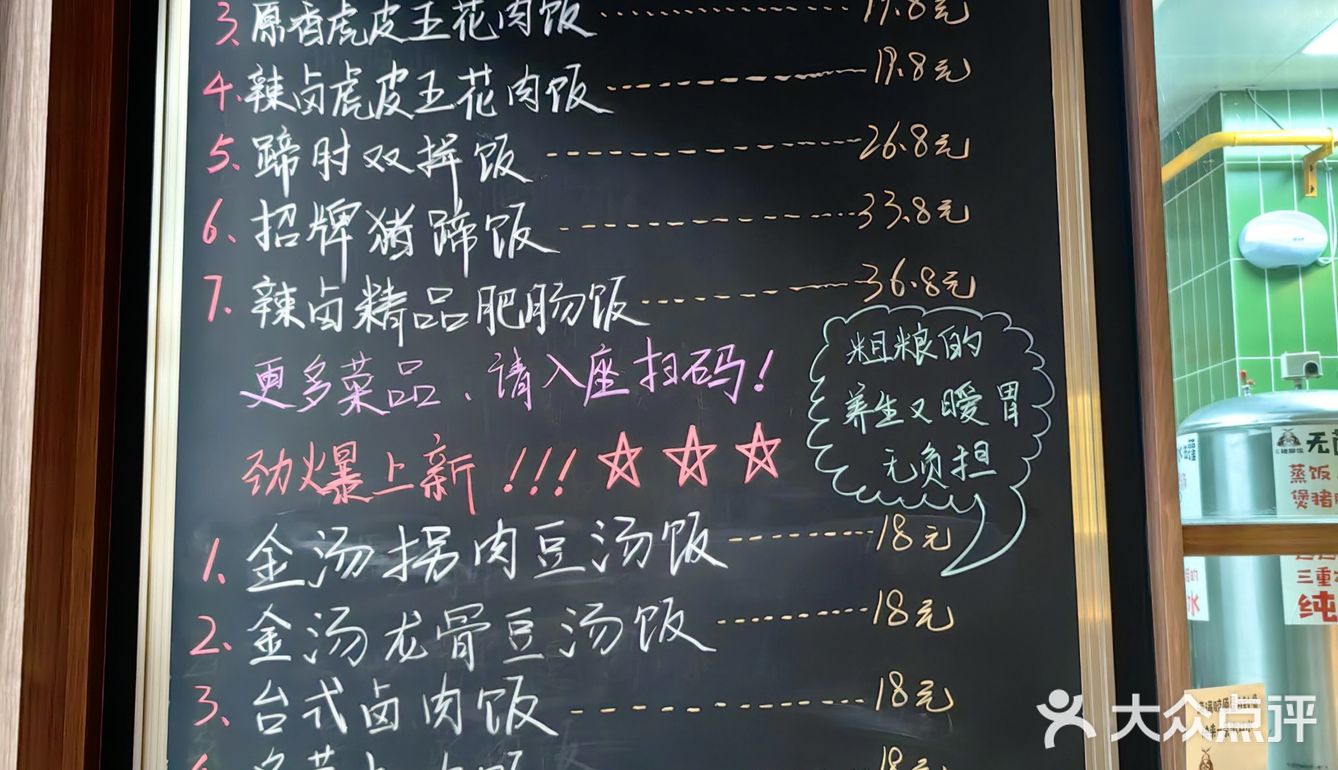 3、原香虎皮五花肉饭 19.8元
4、辣卤虎皮五花肉饭 19.8元
5、蹄肘双拼饭 26.8元
6、招牌猪蹄饭 33.8元
7、辣卤精品肥肠饭 36.8元
更多菜品、请入座扫码!
劲爆上新!!!☆☆☆
粗粮的
养生又暖胃
无负担
1、金汤拐肉豆汤饭 18元
2、金汤龙骨豆汤饭 18元
3、台式卤肉饭 18元
18元
蒸饭
煲猪
三重
纯
大众点评